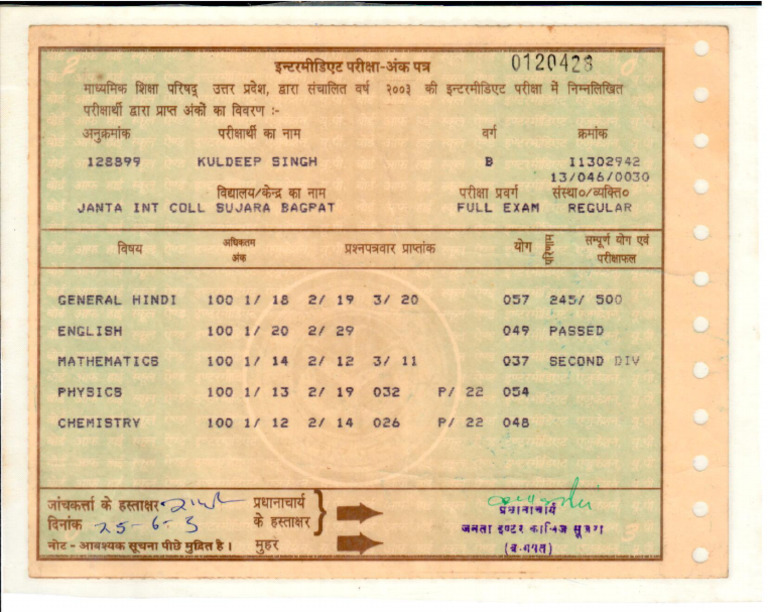 इन्टरमीडिएट परीक्षा-अंक पत्र 0120428
माध्यमिक शिक्षा परिषद् उत्तर प्रदेश, द्वारा संचालित वर्ष २००३ की इन्टरमीडिएट परीक्षा में निम्नलिखित
परीक्षार्थी द्वारा प्राप्त अंकों का विवरण :-
अनुक्रमांक परीक्षार्थी का नाम वर्ग क्रमांक
128899 KULDEEP SINGH B 11302942
13/046/0030
विद्यालय/केन्द्र का नाम परीक्षा प्रवर्ग संस्था०/व्यक्ति०
JANTA INT COLL SUJARA BAGPAT FULL EXAM REGULAR
विषय अधिकतम अंक प्रश्नपत्रवार प्राप्तांक योग परिणाम सम्पूर्ण योग एवं परीक्षाफल
GENERAL HINDI 100 1/ 18 2/ 19 3/ 20 057 245/ 500
ENGLISH 100 1/ 20 2/ 29 049 PASSED
MATHEMATICS 100 1/ 14 2/ 12 3/ 11 037 SECOND DIV
PHYSICS 100 1/ 13 2/ 19 032 P/ 22 054
CHEMISTRY 100 1/ 12 2/ 14 026 P/ 22 048
जांचकर्त्ता के हस्ताक्षर प्रधानाचार्य
दिनांक 25-6-3 के हस्ताक्षर
नोट - आवश्यक सूचना पीछे मुद्रित है। मुहर
प्रधानाचार्य
जनता इण्टर कालिज